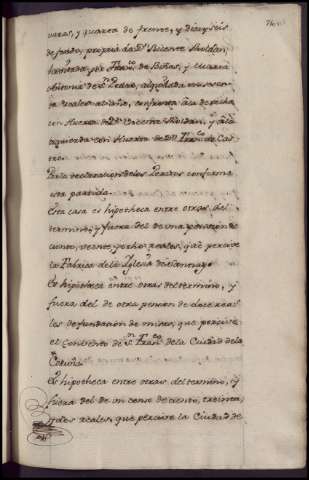 varas, y quarta de frente, y diez y seis
de fondo, propria de Dn. Vicente Roldan,
de Betas, y quarta
de Sn. Pedro, alquilada en sesen-
ta reales al año, confronta a la derecha
con Huerta de Dn. Vicente Roldan, y a la
izquierda con Huerta de Dn. Franco. de Cas
tro.
Por la declaracion de los Peritos conforma
esta partida.
Esta casa es hipotheca entre otras del
termino, y fuera del de una pension de
ciento, veinte, y ocho reales, que percive
la Fabrica de la Iglesia de Santiago
Es hipotheca entre otras del termino, y
fuera del de otra pension de doce reas
les de fundacion de misas, que percive
el Convento de Sn. Franco. de la Ciudad de la
Coruña.
Es hipotheca entre otras del termino, y
fuera del de un censo de ciento, treinta,
y dos reales, que percive la Ciudad de